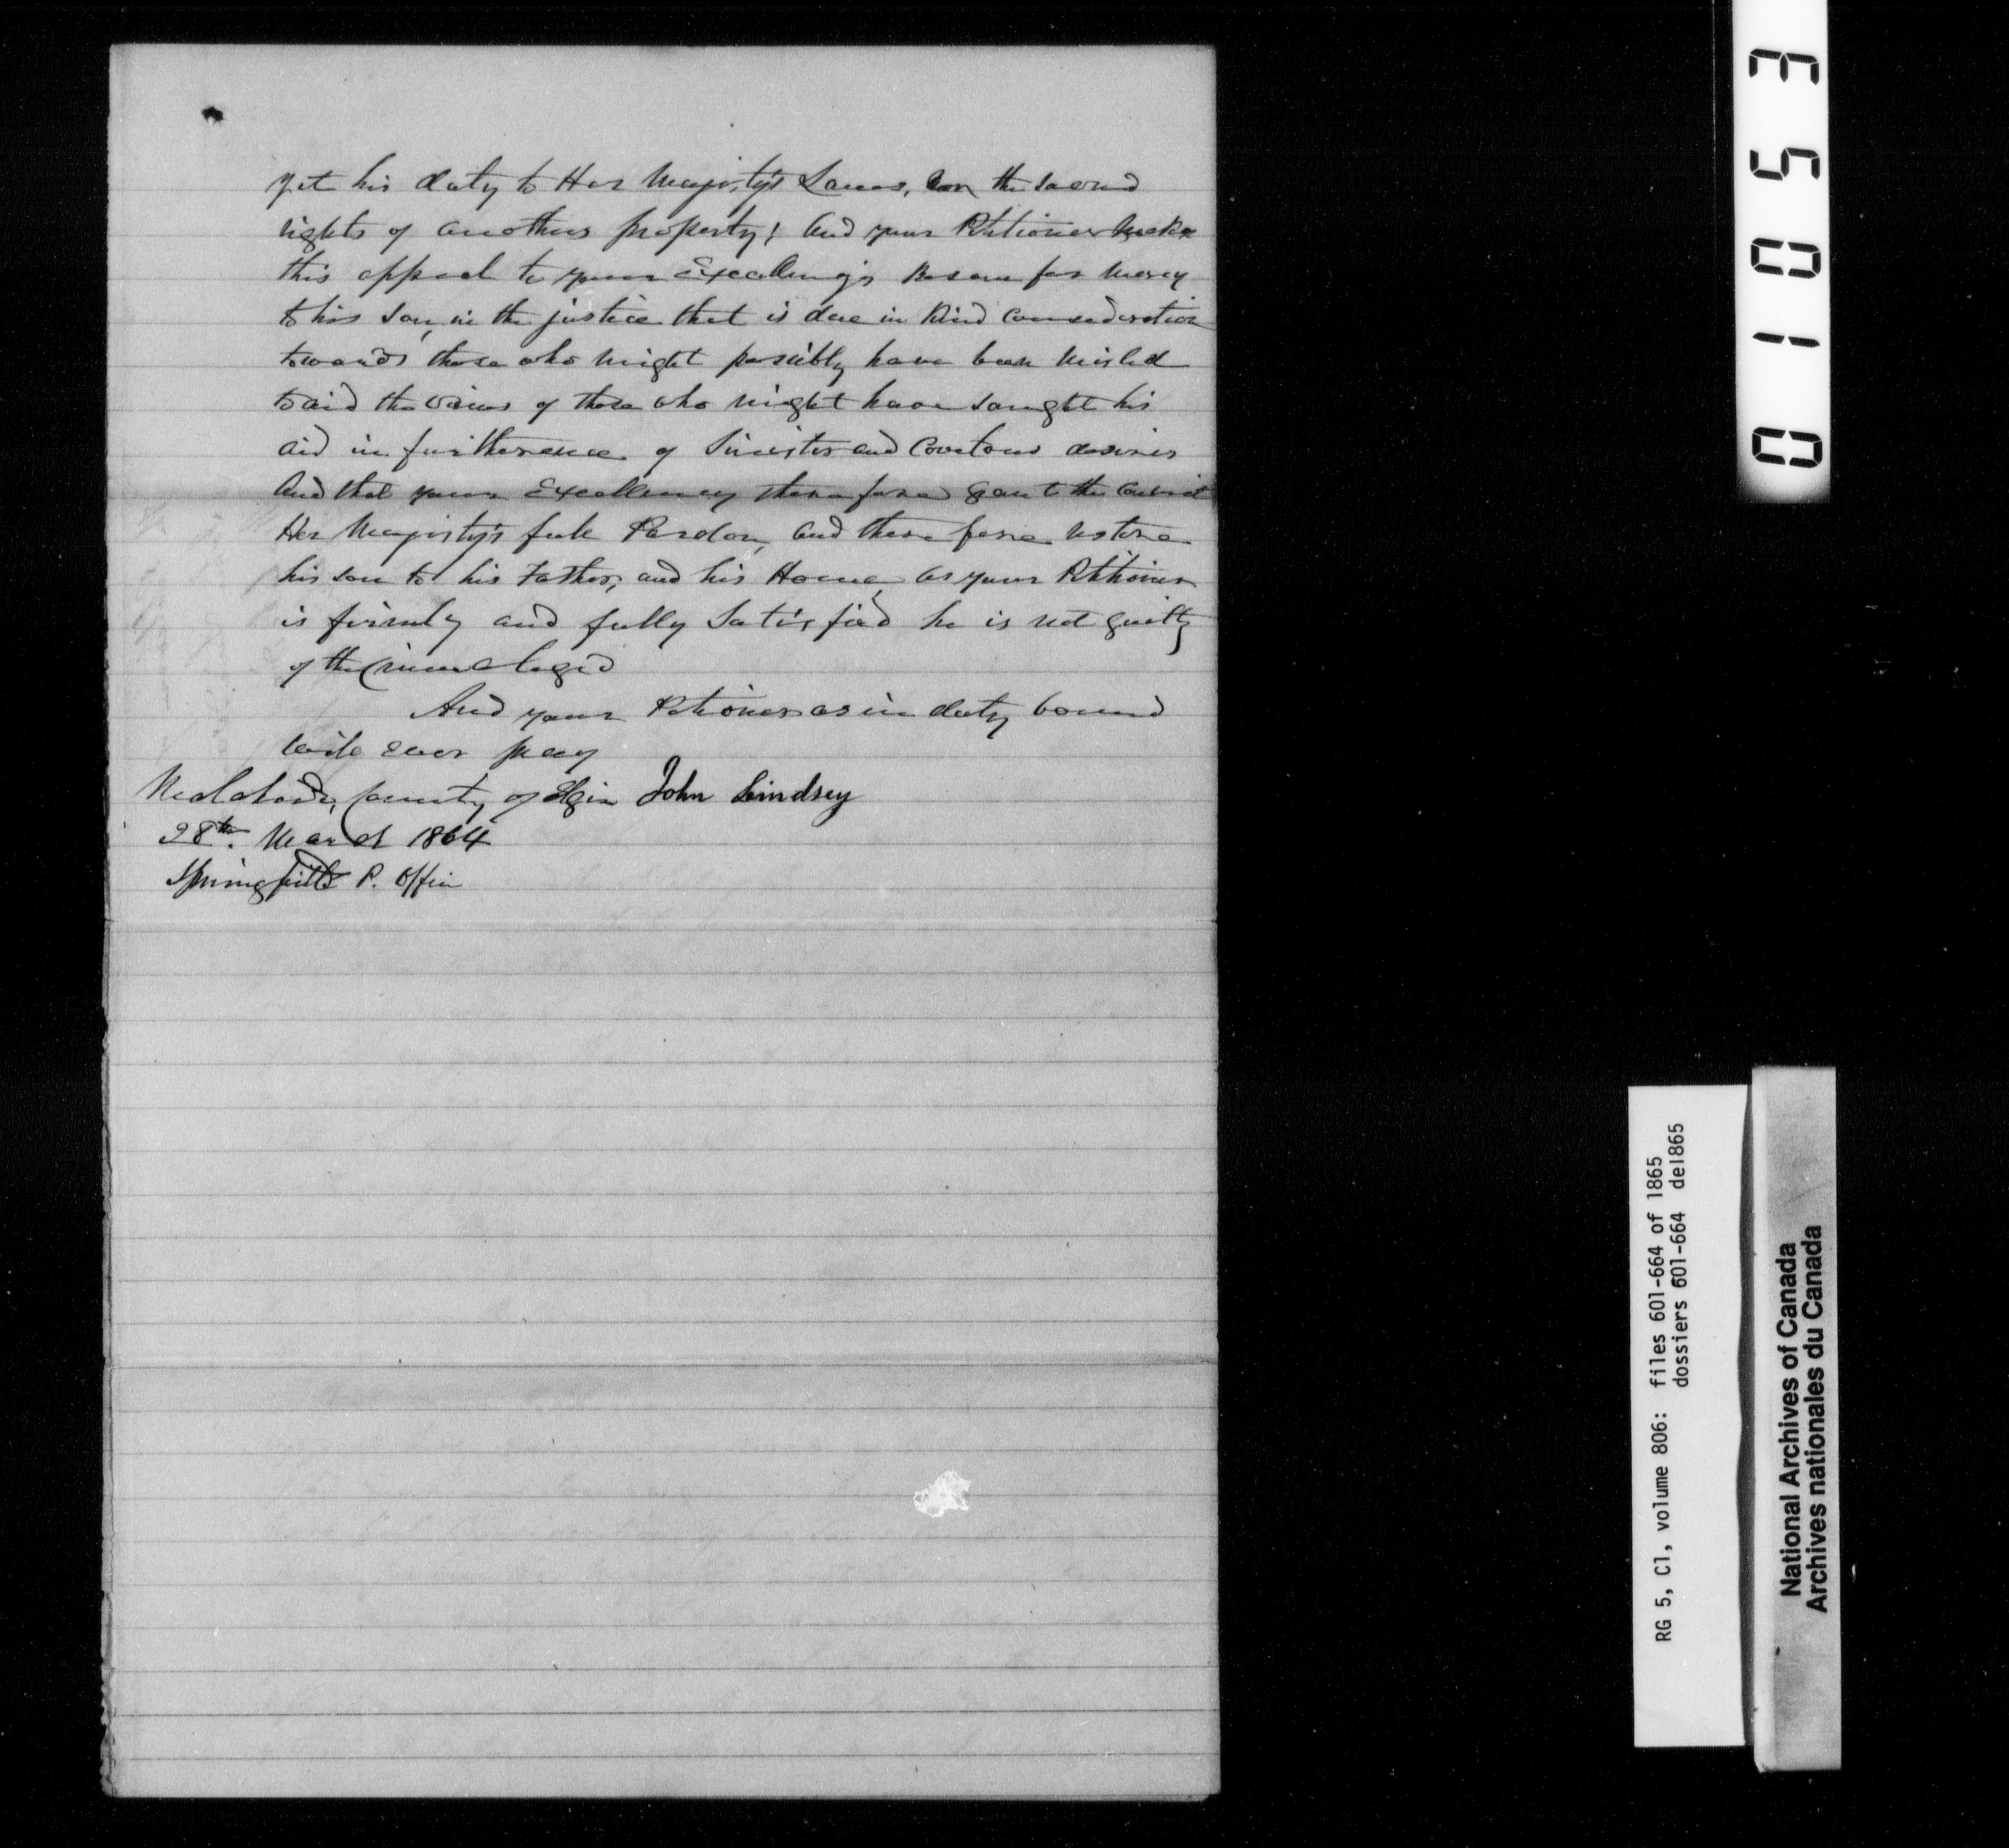 yet his duty to Her Majesty's Laws, or the sacred
rights of anothers property; And your Petitioner makes
this appeal to your Excellency's Bosom for Mercy
to his son, in the justice that is due in Kind Consideration
towards those who might possibly have been misled
to aid the views of those who might have sought his
aid in furtherance of Sinister and Covetous desires
And that your Excellency therefore grant the Convict
Her Majesty's full Pardon, and therefore restore
his son to his Father, and his Home, as your Petitioner
is firmly and fully Satisfied he is not guilty
of the Crime aleged
And your Petitioner as in duty bound
will ever pray
Malahide, County of Elgin John Lindsey
28th. March 1864
Springfield P. Office
01053
RG 5, C1, volume 806: files 601-664 of 1865
dossiers 601-664 de1865
National Archives of Canada
Archives nationales du Canada